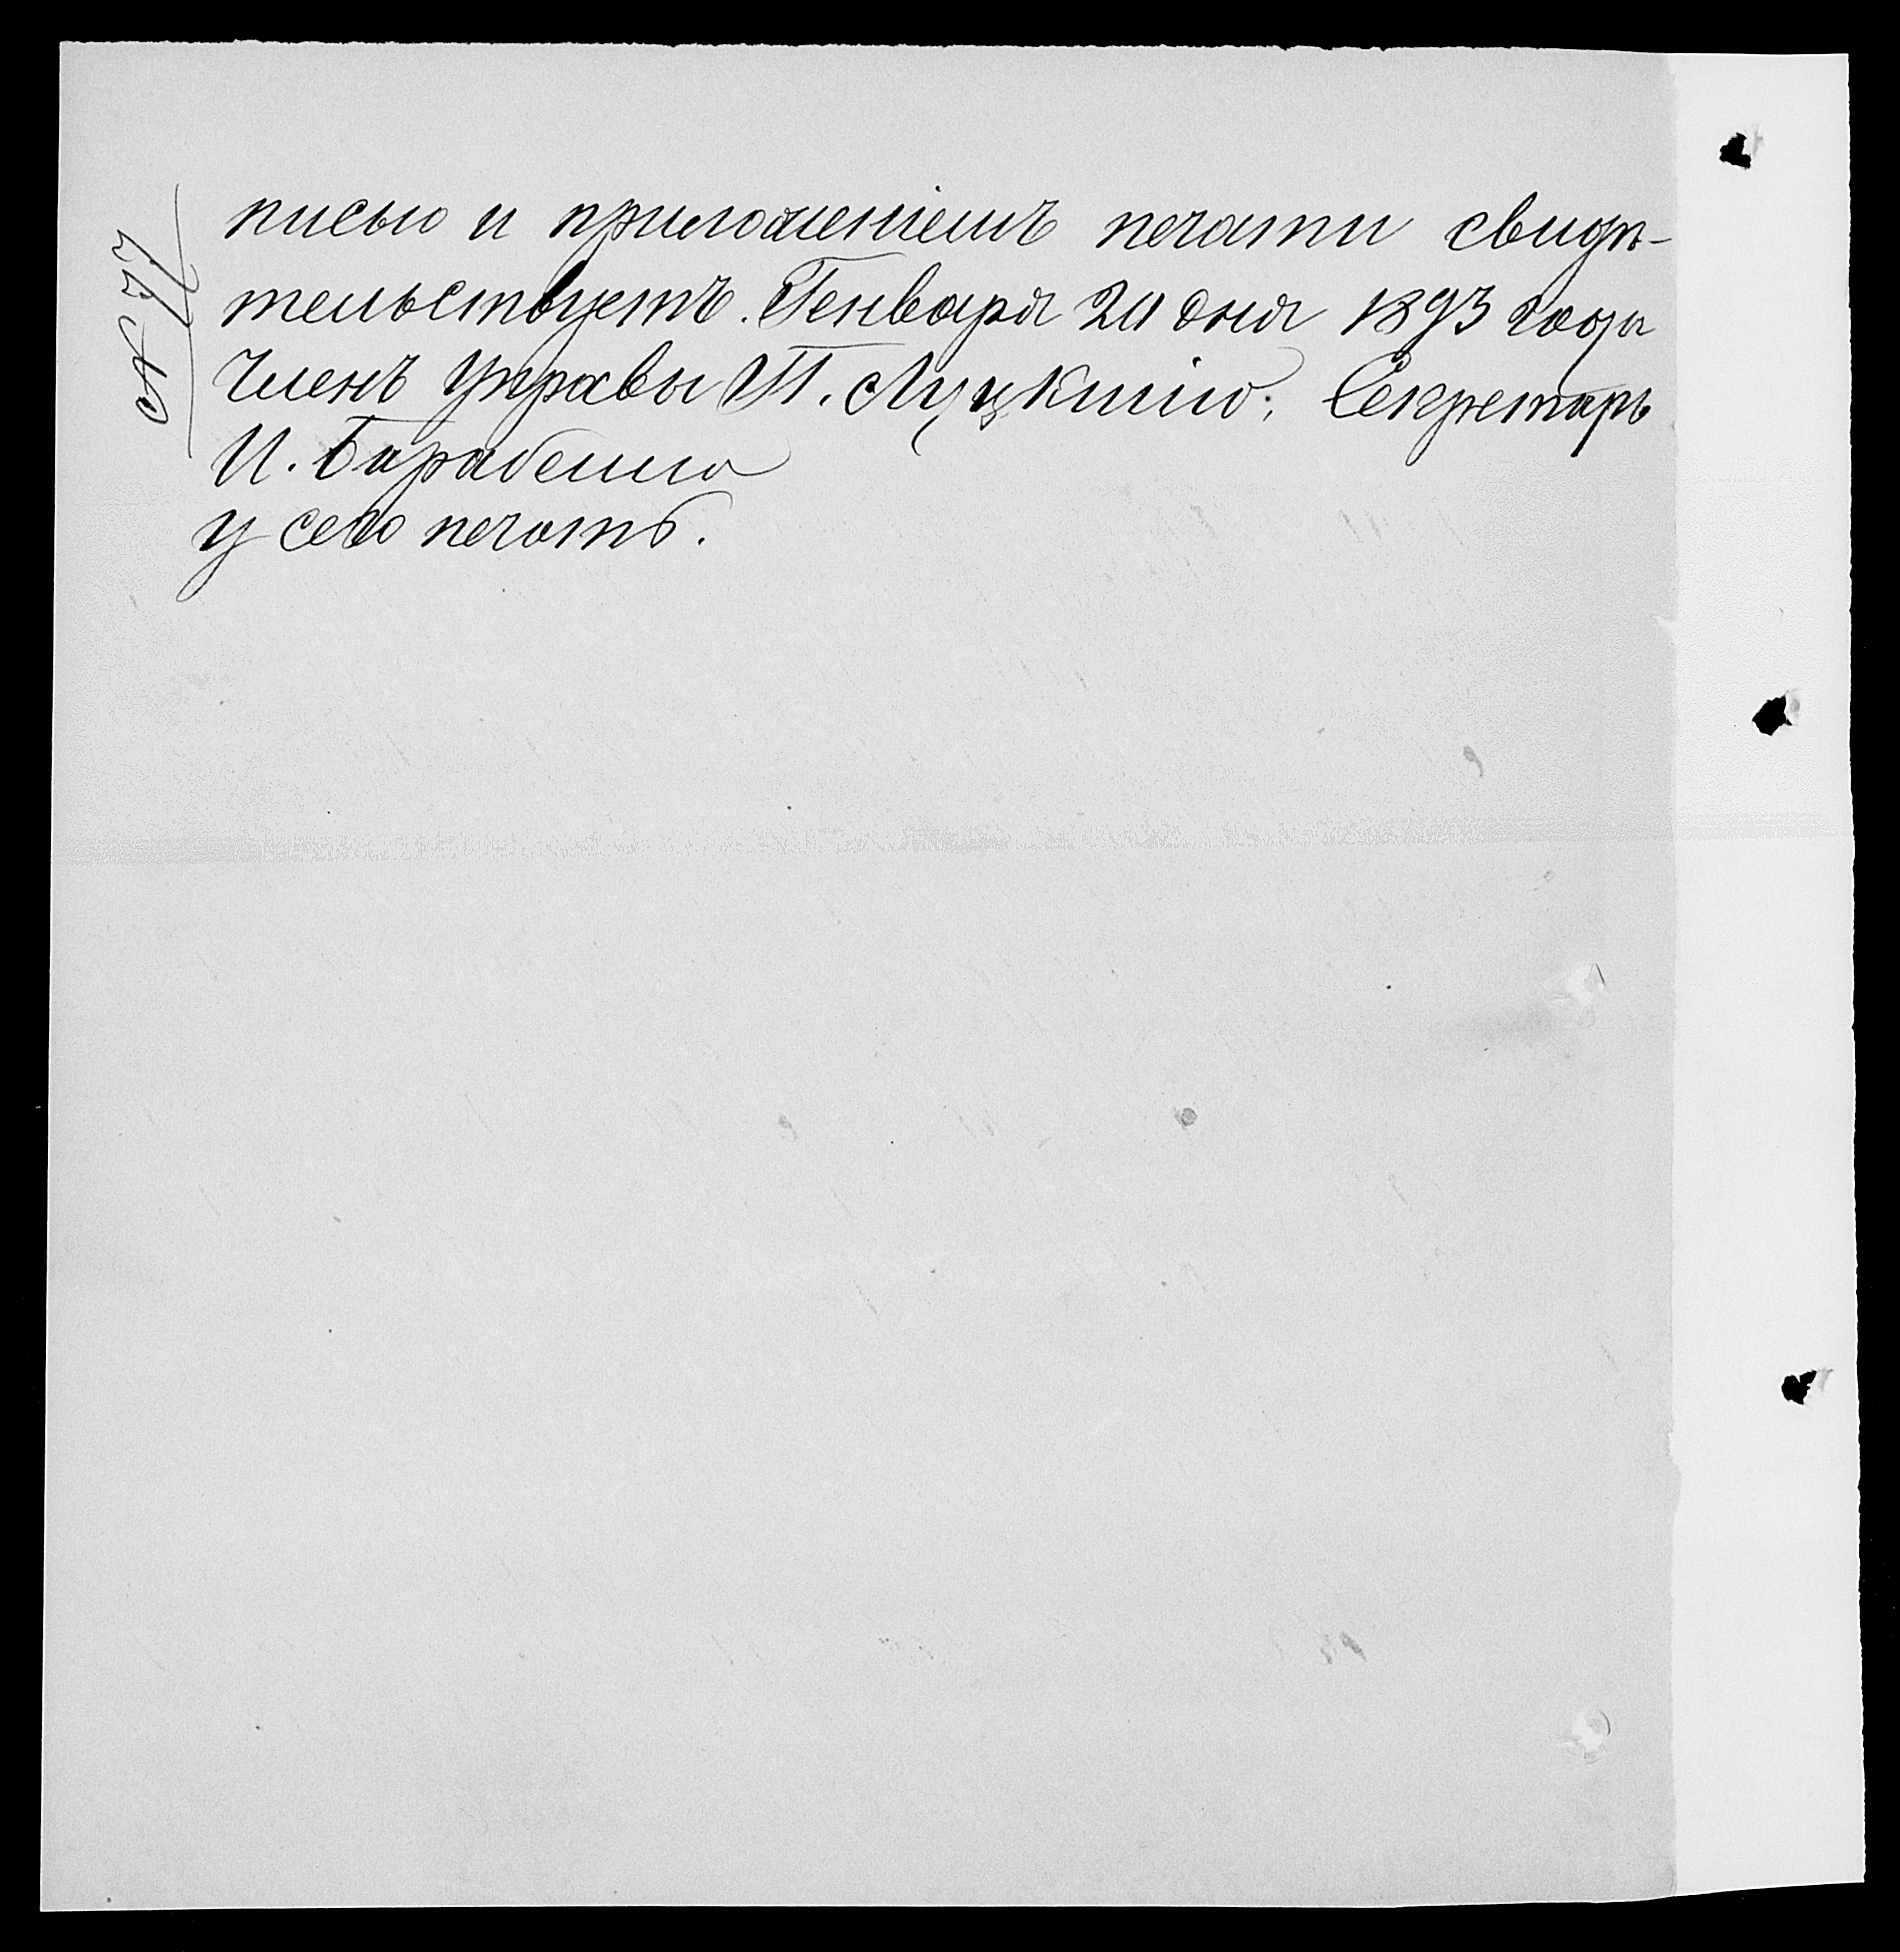 писью и приложеніемъ печати свидѣ-
тельствуетъ. Генваря 20 дня 1893 года
Членъ Управы П. Луцкий. Секретарь
И. Барабеша
у сего печать.
№ 77